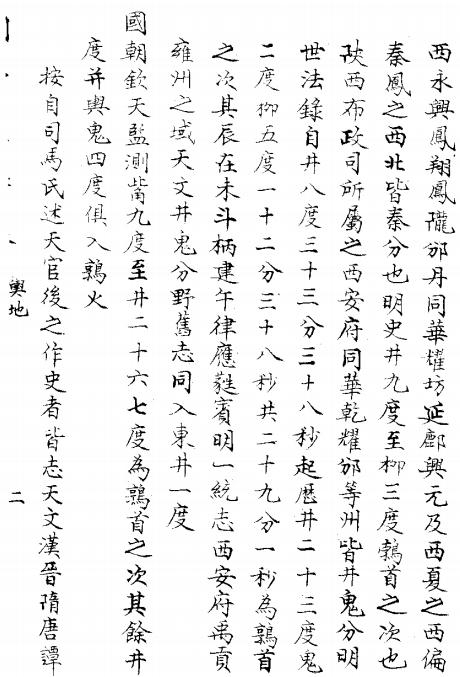 西永興鳳翔鳳隴邠丹同華耀坊延鄜興元及西夏之西偏
秦鳳之西北皆秦分也明史井九度至柳三度鶉首之次也
陜西布政司所屬之西安府同華乾耀邠等州皆井鬼分明
世法錄自井八度三十三分三十八秒起曆井二十三度鬼
二度柳五度一十二分三十八秒共二十九分一秒為鶉首
之次其辰在未斗柄建午律應蕤賓明一統志西安府禹貢
雍州之域天文井鬼分野舊志同入東井一度
國朝欽天監測觜九度至井二十六七度為鶉首之次其餘井
度并輿鬼四度俱入鶉火
按自司馬氏述天官後之作史者皆志天文漢晉隋唐譚
輿地
二